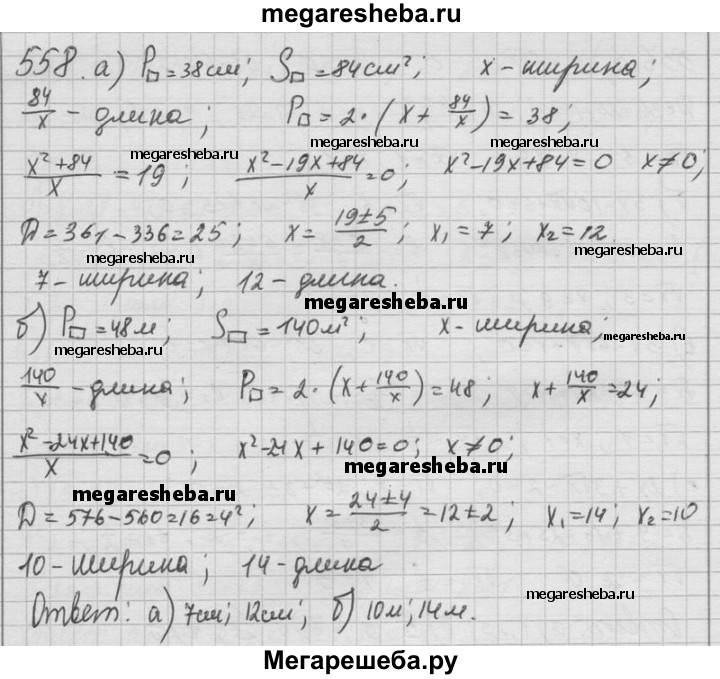 megaresheba.ru
558. а) P□ = 38 см; S□ = 84 см²; x - ширина;
84/x - длина; P□ = 2·(x + 84/x) = 38;
megaresheba.ru
megaresheba.ru megaresheba.ru megaresheba.ru
(x² + 84)/x = 19; (x² - 19x + 84)/x = 0; x² - 19x + 84 = 0 x ≠ 0;
Д = 361 - 336 = 25; x = (19 ± 5)/2; x₁ = 7; x₂ = 12.
megaresheba.ru megaresheba.ru
7 - ширина; 12 - длина.
megaresheba.ru
б) P□ = 48 м; S□ = 140 м²; x - ширина;
megaresheba.ru megaresheba.ru megaresheba.ru
140/x - длина; P□ = 2·(x + 140/x) = 48; x + 140/x = 24;
(x² - 24x + 140)/x = 0; x² - 24x + 140 = 0; x ≠ 0;
megaresheba.ru
megaresheba.ru
Д = 576 - 560 = 16 = 4²; x = (24 ± 4)/2 = 12 ± 2; x₁ = 14; x₂ = 10
10 - ширина; 14 - длина
megaresheba.ru
Ответ: а) 7 см; 12 см; б) 10 м; 14 м.
Мегарешеба.ру